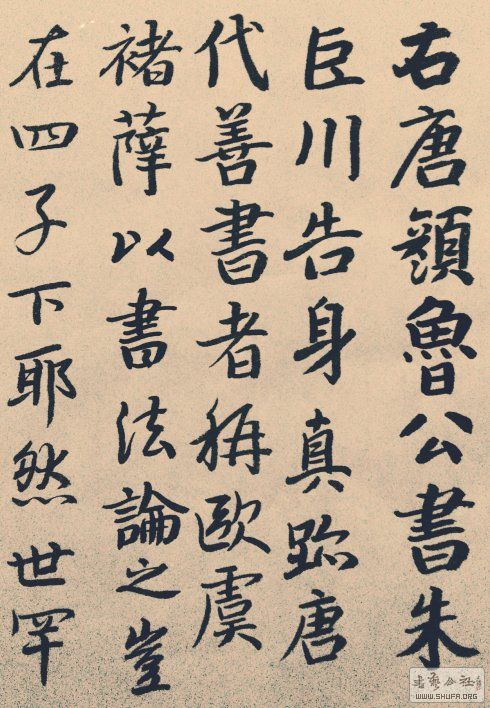 右唐顔魯公書朱
巨川告身真跡唐
代善書者稱歐虞
褚薛以書法論之豈
在四子下耶然世罕
書藝公社
WWW.SHUFA.ORG